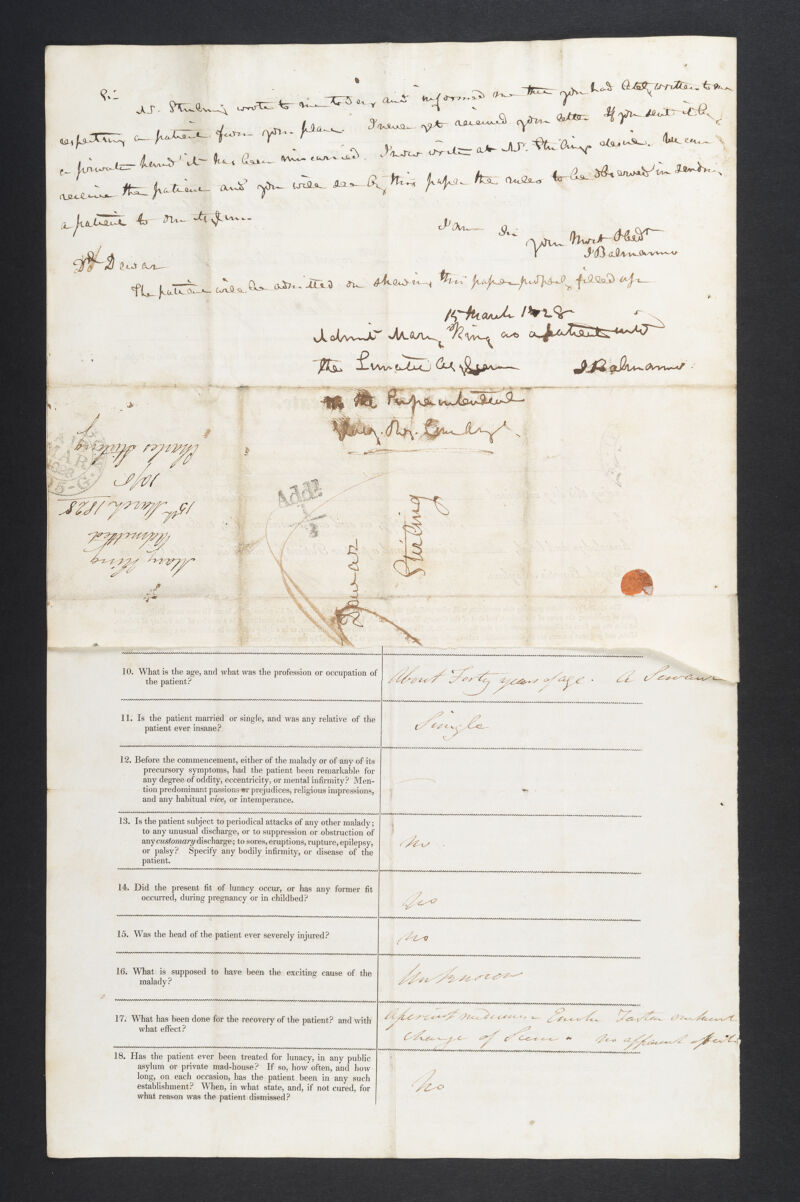 Sir
Mr. Stirling wrote to me to day and informed me that you had lately written to me
respecting a patient from your place I never yet received your letter If you sent it by
a private hand it has been miscarried. I now write at Mr. Stirlings desire. We can
receive the patient and you will see by this paper the rules to be observed in sending
a patient to our Asylum
I am Sir
your Most Obedt
J Balmanno
Dr Dewar
The patient will be admitted on shewing this paper properly filled up
15 March 1828
Admit Mary King as a patient into
the Lunatic Asylum J Balmanno
To the Superintendent
Mary King
Admitted
15th March 1828
Charles Stirling
MAR
Addl
1/2
Dewar
Stirling
10. What is the age, and what was the profession or occupation of
the patient?
About Forty years of age. A Servant
11. Is the patient married or single, and was any relative of the
patient ever insane?
Single
12. Before the commencement, either of the malady or of any of its
precursory symptoms, had the patient been remarkable for
any degree of oddity, eccentricity, or mental infirmity? Men-
tion predominant passions or prejudices, religious impressions,
and any habitual vice, or intemperance.
13. Is the patient subject to periodical attacks of any other malady;
to any unusual discharge, or to suppression or obstruction of
any customary discharge; to sores, eruptions, rupture, epilepsy,
or palsy? Specify any bodily infirmity, or disease of the
patient.
No
14. Did the present fit of lunacy occur, or has any former fit
occurred, during pregnancy or in childbed?
No
15. Was the head of the patient ever severely injured?
No
16. What is supposed to have been the exciting cause of the
malady?
Unknown
17. What has been done for the recovery of the patient? and with
what effect?
Aperient medicines Emetic Tartar ointment
Change of Scene. No apparent effects
18. Has the patient ever been treated for lunacy, in any public
asylum or private mad-house? If so, how often, and how
long, on each occasion, has the patient been in any such
establishment? When, in what state, and, if not cured, for
what reason was the patient dismissed?
No